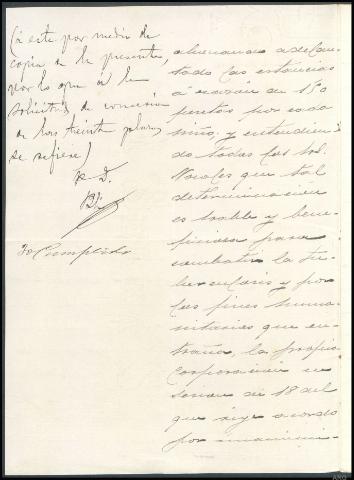 (á este por medio de
copia de la presente,
por lo que á la
solicitud de concesión
de las treinta plazas
se refiere)
Cumplido
abonando adelan-
tado las estancias
á razón de 150
pesetas por cada
niño y entendien-
do todos los Sres.
Vocales que tal
determinación
es noble y bene-
ficiosa para
combatir la tu-
berculosis y por
los fines huma-
nitarios que en-
traña, la propia
Corporación en
sesión de 18 del
que rige acordó
por unanimi-